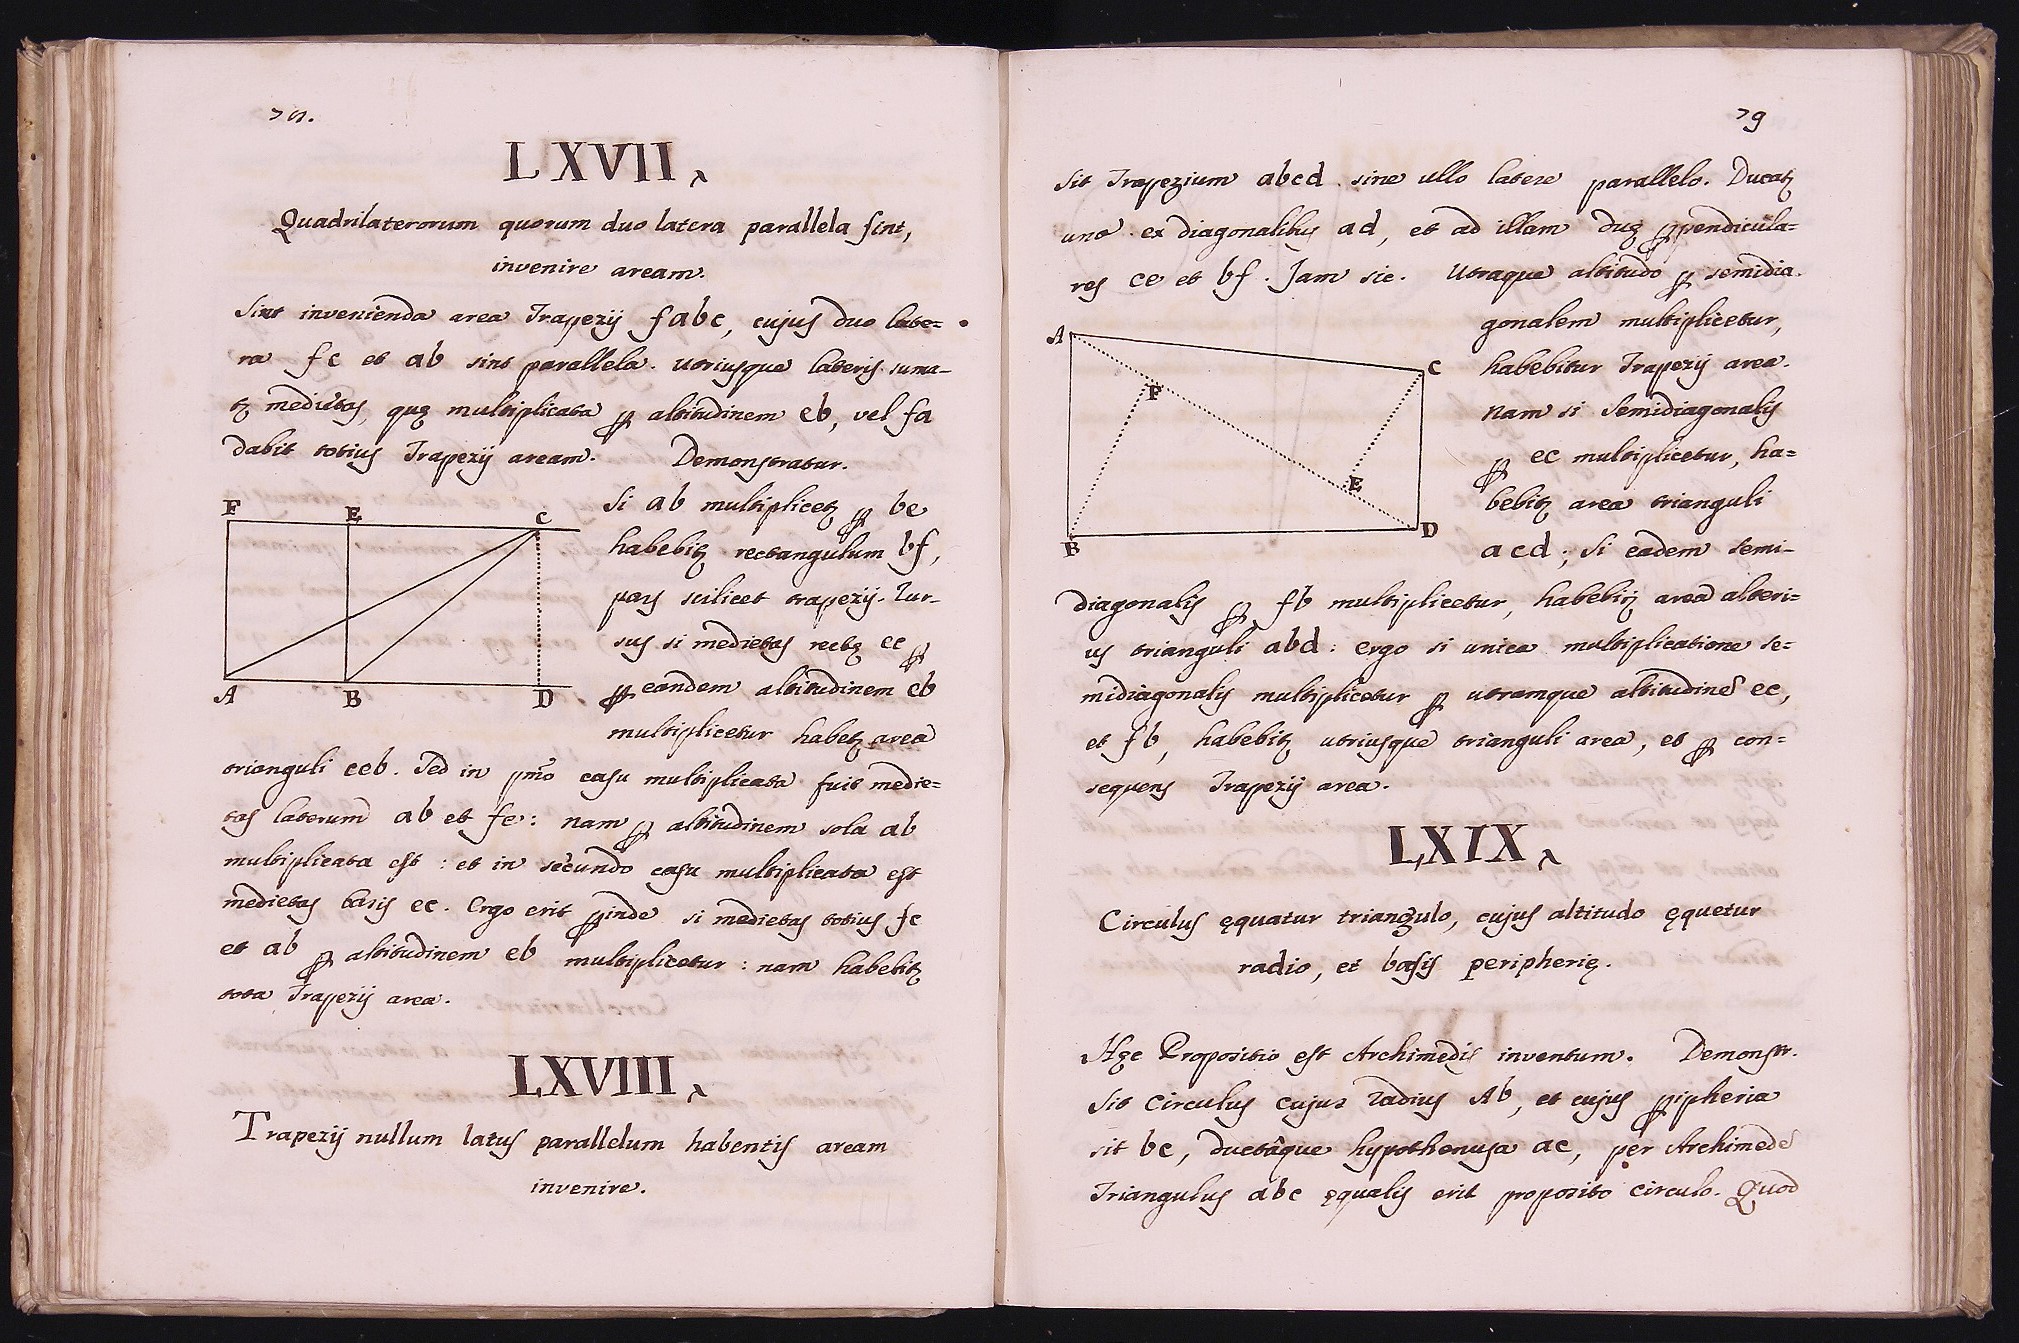 78.
LXVII
Quadrilaterorum quorum duo latera parallela sint,
invenire aream.
Sint invenienda area Trapezij fabc, cujus duo late=
ra fc et ab sint parallela. Utriusque lateris suma-
tꝫ medietas, quę multiplicata ꝑ altitudinem eb, vel fa
dabit totius Trapezij aream. Demonstratur.
Si ab multiplicetꝫ ꝑ be
habebitꝫ rectangulum bf,
pars scilicet trapezij. Rur-
sus si medietas rectę ec ꝑ
ꝑ eandem altitudinem eb
multiplicetur habetꝫ area
F E C
A B D
trianguli ceb. Sed in pmo casu multiplicata fuit medie=
tas laterum ab et fe: nam ꝑ altitudinem sola ab
multiplicata est: et in secundo casu multiplicata est
medietas basis ec. Ergo erit ꝑinde si medietas totius fc
et ab ꝑ altitudinem eb multiplicetur: nam habebitꝫ
tota Trapezij area.
LXVIII
Trapezij nullum latus parallelum habentis aream
invenire.
79
Sit Trapezium abcd sine ullo latere parallelo. Ducatꝫ
una ex diagonalibus ad, et ad illam duę ꝑpendicula=
res ce et bf. Jam sic. Utraque altitudo ꝑ semidia-
gonalem multiplicetur,
habebitur Trapezij area.
nam si semidiagonalis
ꝑ ec multiplicetur, ha=
bebitꝫ area trianguli
acd; si eadem semi-
A C
F
E
B D
diagonalis ꝑ fb multiplicetur, habebitꝫ area alteri=
us trianguli abd: ergo si unica multiplicatione se=
midiagonalis multiplicetur ꝑ utramque altitudinē ec,
et fb, habebitꝫ utriusque trianguli area, et ꝑ con=
sequens Trapezij area.
LXIX
Circulus ęquatur triangulo, cujus altitudo ęquetur
radio, et basis peripherię.
Hęc Propositio est Archimedis inventum. Demonstr.
Sit Circulus cujus radius Ab, et cujus ꝑipheria
sit bc, ductâque hypothenusa ac, per Archimedē
Triangulus abc ęqualis erit proposito circulo. Quod